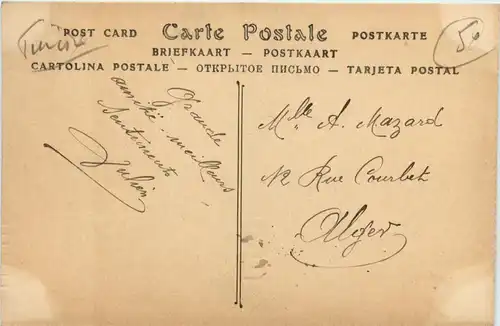 Tunisie
POST CARD Carte Postale POSTKARTE
BRIEFKAART — POSTKAART
CARTOLINA POSTALE — ОТКРЫТОЕ ПИСЬМО — TARJETA POSTAL
Grande
amitié - meilleurs
sentiments
Julien
Mlle A. Mazard
12 Rue Courbet
Alger